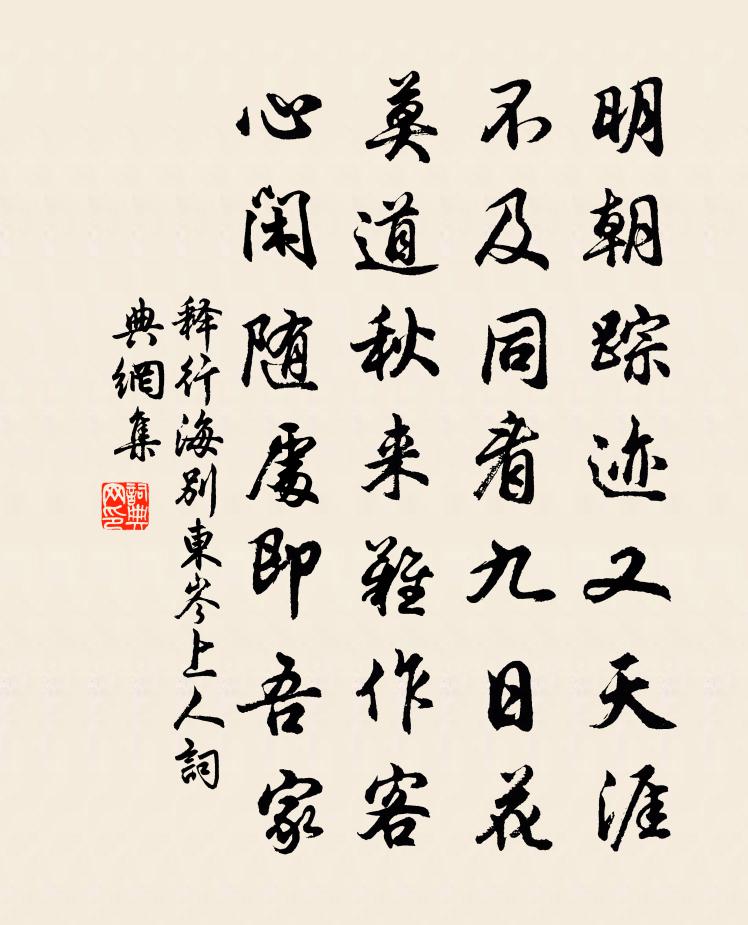 明朝踪迹又天涯
不及同看九日花
莫道秋来難作客
心闲随處即吾家
释行海别東岑上人詞
典網集
詞典网印